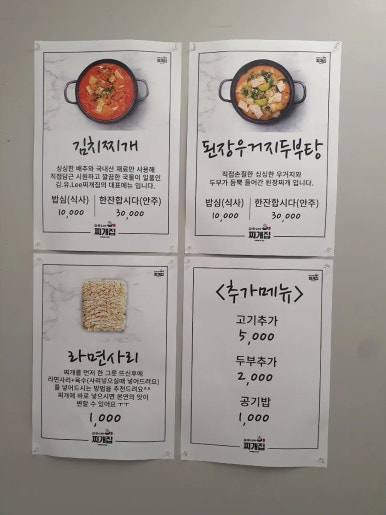 찌개집
김치찌개
싱싱한 배추와 국내산 재료만 사용해
직접담근 시원하고 깔끔한 국물이 일품인
김.유.Lee찌개집의 대표메뉴 입니다.
밥심(식사)
한잔합시다(안주)
10,000
30,000
찌개집
찌개집
된장우거지두부탕
직접손질한 싱싱한 우거지와
두부가 듬뿍 들어간 된장찌개 입니다.
밥심(식사)
한잔합시다(안주)
10,000
30,000
찌개집
찌개집
라면사리
찌개를 먼저 한 그릇 뜨신후에
라면사리+육수(사리넣으실때 넣어드려요)
를 넣어드시는 방법을 추천드려요^^
찌개에 바로 넣으시면 본연의 맛이
변할 수 있어요 ㅜㅜ
1,000
찌개집
찌개집
<추가메뉴>
고기추가
5,000
두부추가
2,000
공기밥
1,000
찌개집